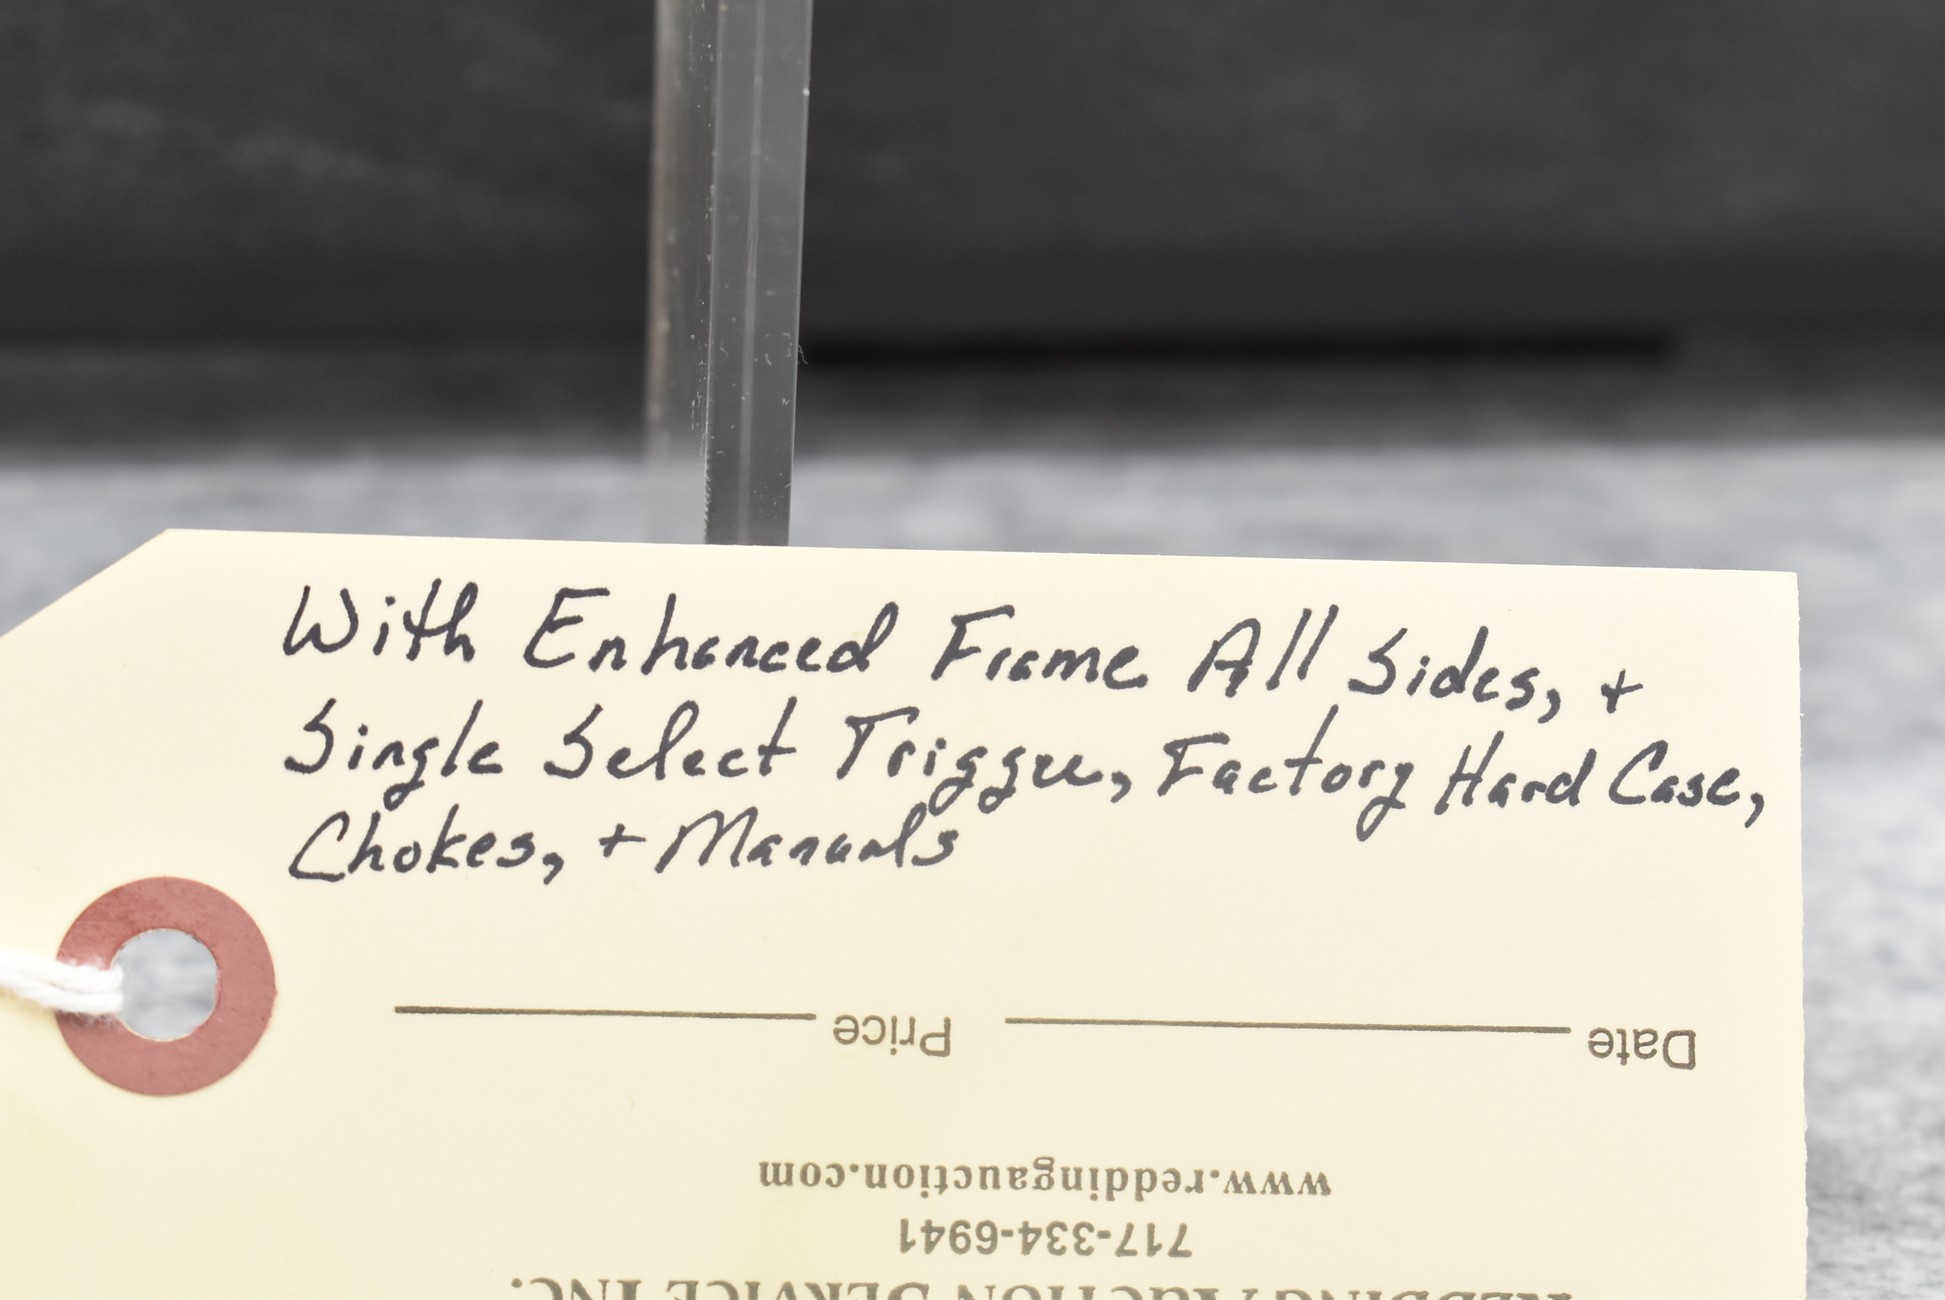 With Enhanced Frame All Sides, +
Single Select Trigger, Factory Hard Case,
Chokes, + Manuals
Date Price
www.reddingauction.com
717-334-6941
REDDING AUCTION SERVICE INC.